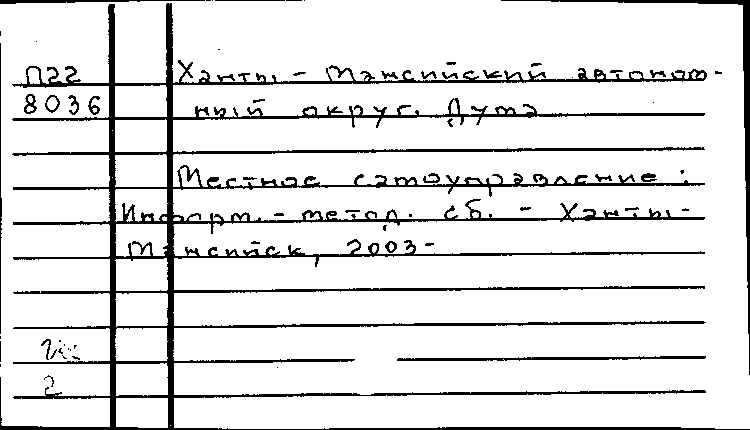 П22
8036
Ханты - Мансийский автоном-
ный округ. Дума
Местное самоуправление :
Информ. - метод. сб. - Ханты -
Мансийск, 2003 -
2